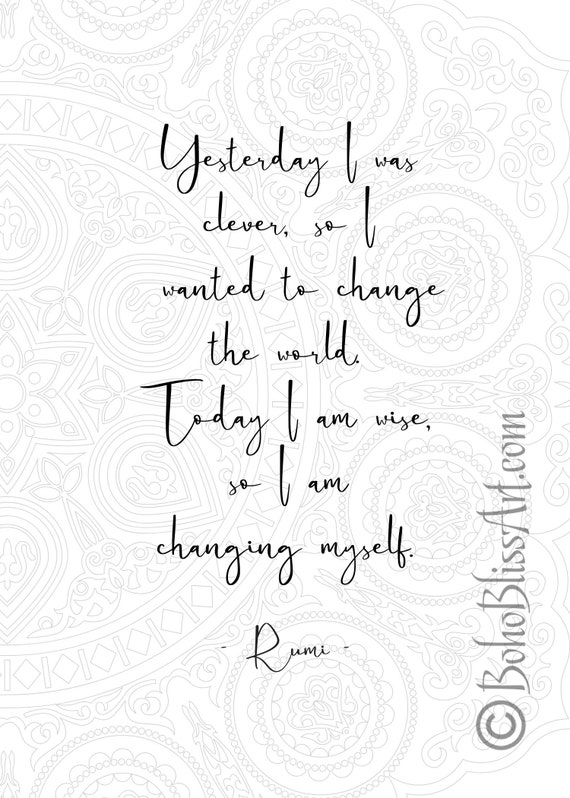 Yesterday I was
clever, so I
wanted to change
the world.
Today I am wise,
so I am
changing myself.
- Rumi -
©BohoBlissArt.com